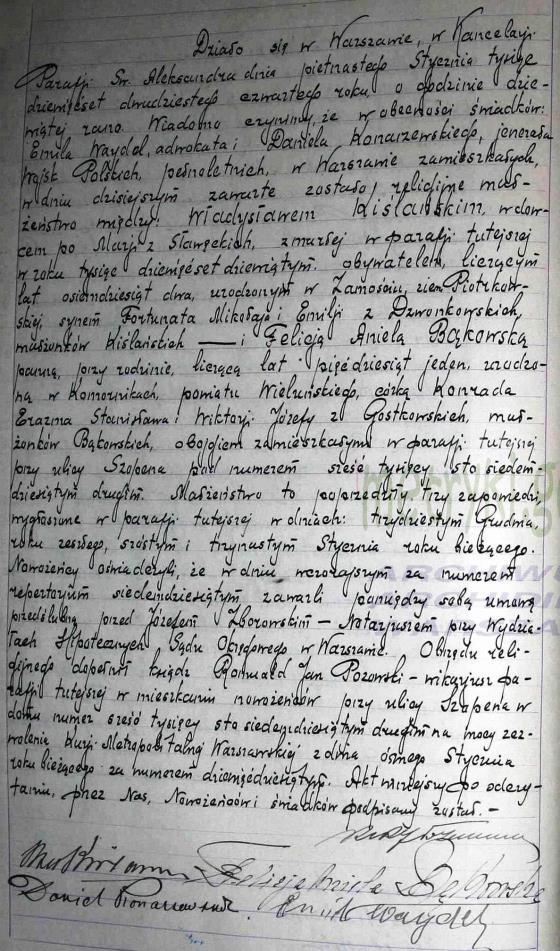 Działo się w Warszawie, w Kancelarji
Parafji Św. Aleksandra dnia piętnastego Stycznia tysiąc
dziewięćset dwudziestego czwartego roku o godzinie dzie-
wiątej rano. Wiadomo czynimy, że w obecności świadków:
Emila Waydel, adwokata i Daniela Konarzewskiego, jenerała
Wojsk Polskich, pełnoletnich, w Warszawie zamieszkałych,
w dniu dzisiejszym zawarte zostało religijne mał-
żeństwo między: Władysławem Kiślańskim, wdow-
cem po Marji z Sławęckich, zmarłej w parafji tutejszej
w roku tysiąc dziewięćset dziewiątym, obywatelem, liczącym
lat osiemdziesiąt dwa, urodzonym w Zamościu, ziemi Piotrkow-
skiej, synem Fortunata Mikołaja i Emilji z Dzwonkowskich,
małżonków Kiślańskich — i Felicją Anielą Bąkowską
panną, przy rodzinie, liczącą lat pięćdziesiąt jeden, urodzo-
ną w Komornikach, powiatu Wieluńskiego, córką Konrada
Erazma Stanisława i Wiktorji Józefy z Gostkowskich, mał-
żonków Bąkowskich, obojgiem zamieszkałymi w parafji tutejszej
przy ulicy Szopena pod numerem sześć tysięcy sto siedem-
dziesiątym drugim. Małżeństwo to poprzedziły trzy zapowiedzi,
wygłoszone w parafji tutejszej w dniach: trzydziestym Grudnia,
roku zeszłego, szóstym i trzynastym Stycznia roku bieżącego.
Nowożeńcy oświadczyli, że w dniu wczorajszym za numerem
repertorjum siedemdziesiątym zawarli pomiędzy sobą umowę
przedślubną przed Józefem Zborowskim — Notarjuszem przy Wydzia-
łach Hipotecznych Sądu Okręgowego w Warszawie. Obrzędu reli-
gijnego dopełnił ksiądz Romuald Jan - wikarjusz pa-
rafji tutejszej w mieszkaniu nowożeńców przy ulicy Szopena w
domu numer sześć tysięcy sto siedemdziesiątym drugim na mocy zez-
wolenia Kurji Metropolitalnej Warszawskiej z dnia ósmego Stycznia
roku bieżącego za numerem dziewięćdziesiątym. Akt niniejszy po odczy-
taniu, przez Nas, Nowożeńców i świadków podpisany został. —
Felicja Aniela Bąkowska
Daniel Konarzewski Emil Waydel